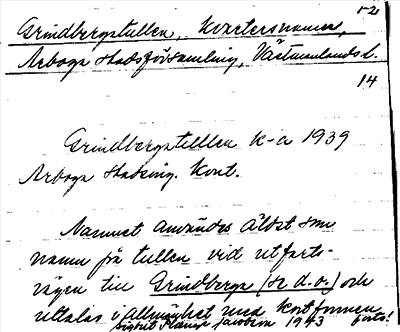 52
Grindbergstullen, kvartersnamn,
Arboga stadsförsamling, Västmanlands l.
14
Grindbergstulllen k-a 1939
Arboga stadsing. kont.
Namnet användes äldst som
namn på tullen vid utfarts-
vägen till Grindberga (se d. o.) och
uttalas i allmänhet med kortformen
Jansson 1943 forts!